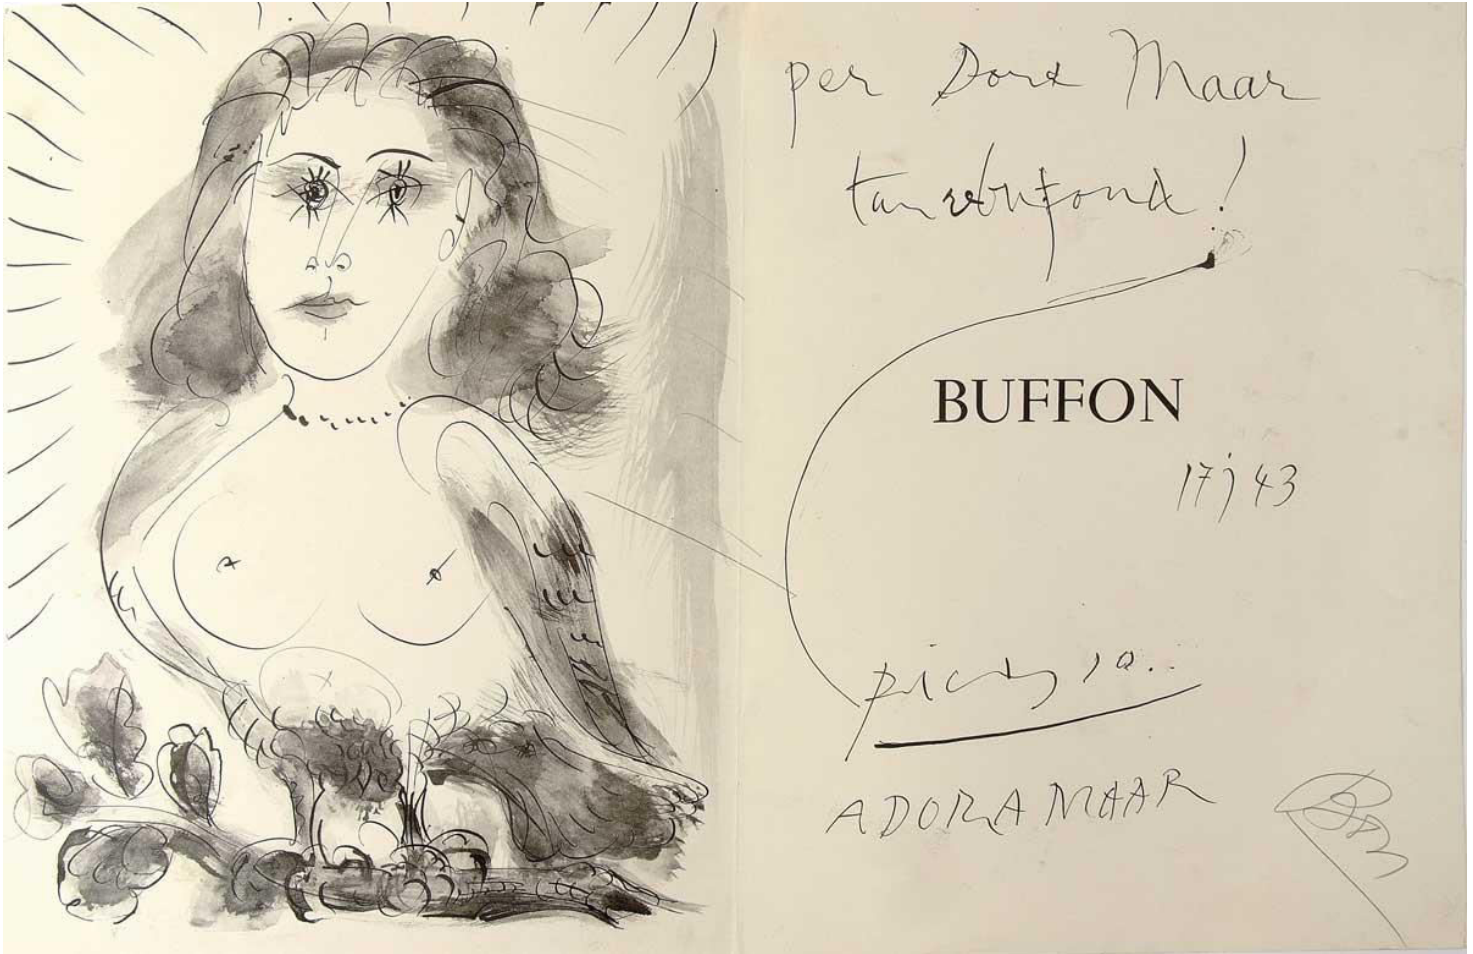 per Dora Maar
tan rebufond!
BUFFON
17 j 43
Picasso
ADORA MAAR